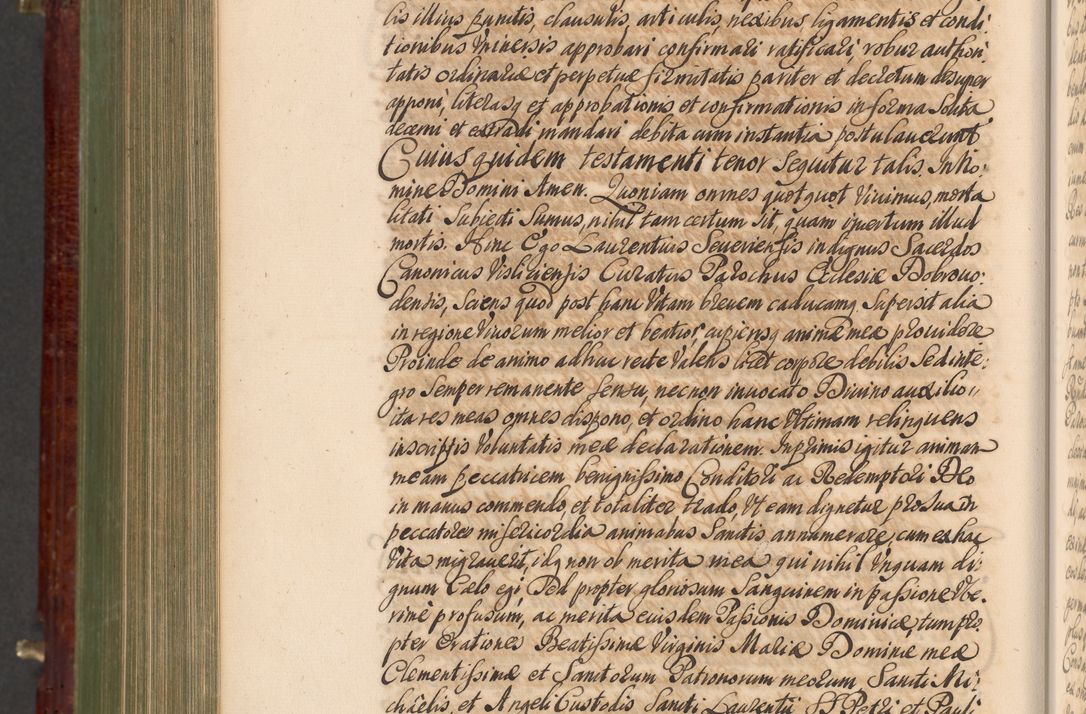 lis illius punctis, clausulis, articulis, nexibus ligamentis et condi-
tionibus Vniversis approbari confirmari ratificari, robur authori-
tatis ordinariæ et perpetuæ firmitatis pariter et decretum desuper
apponi, literasq et approbationis et confirmationis in forma Solita
decerni et extradi mandari debita cum instantia postulauerunt
Cuius quidem testamenti tenor Sequitur talis. In No-
mine Domini Amen. Quoniam omnes quotquot Viuimus, morta
litati Subiecti Sumus, nihil tam certum Sit, quam incertum illud
mortis. Hinc Ego Laurentius Seueriensis indignus Sacerdos
Canonicus Visliciensis Curatus Parochus Ecclesiæ Dobrouo-
densis, Sciens quod post hanc Vitam breuem caducamq Superest alia
in regione Viuorum melior et beatior, cupiensq animæ meæ prouidere
Proinde de animo adhuc recte Valens licet corpore debilis Sed inte-
gro Semper remanente Sensu, necnon inuocato Diuino auxilio
ita res meas omnes dispono, et ordino hanc Vltimam relinquens
inscriptis Voluntatis meæ declarationem. Inprimis igitur animam
meam peccatricem, benignissimo Conditori ac Redemptori Deo
in manus commendo, et totaliter trado, Vt eam dignetur pro Sua in
peccatores misericordia animabus Sanctis annumerare, cum ex hac
Vita migrauerit, idq non ob merita mea qui nihil Vnquam di-
gnum Cælo egi Sed propter gloriosum Sanguinem in passione Ve-
rine profusum, ac merita eiusdem Passionis Dominicæ, tum pro-
pter Orationes Beatissimæ Virginis Mariæ Dominæ meæ
Clementissimæ et Sanctorum Patronorum meorum Sancti Mi-
chaelis, et Angeli Custodis Sancti Laurentii SS Petri et Pauli